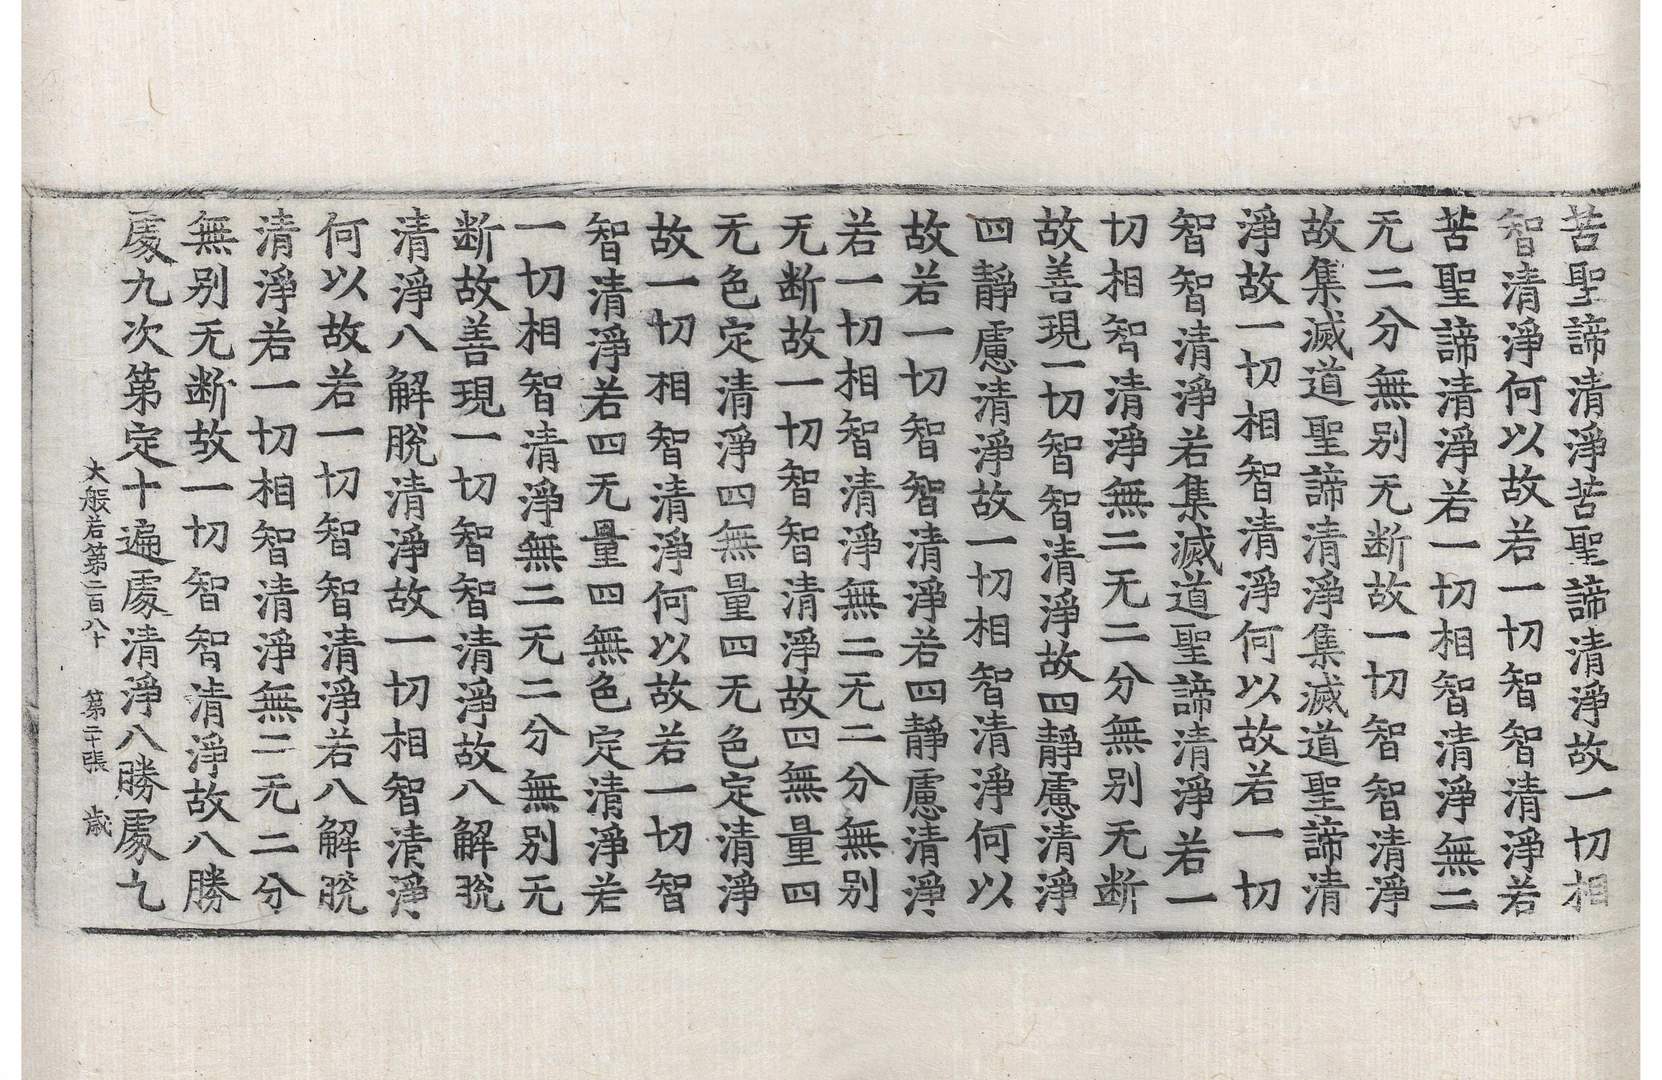 苦聖諦清淨苦聖諦清淨故一切相
智清淨何以故若一切智智清淨若
苦聖諦清淨若一切相智清淨無二
无二分無别无断故一切智智清淨
故集滅道聖諦清淨集滅道聖諦清
淨故一切相智清淨何以故若一切
智智清淨若集滅道聖諦清淨若一
切相智清淨無二无二分無别无断
故善現一切智智清淨故四靜慮清淨
四靜慮清淨故一切相智清淨何以
故若一切智智清淨若四靜慮清淨
若一切相智清淨無二无二分無别
无断故一切智智清淨故四無量四
无色定清淨四無量四无色定清淨
故一切相智清淨何以故若一切智
智清淨若四无量四無色定清淨若
一切相智清淨無二无二分無别无
断故善現一切智智清淨故八解脫
清淨八解脫清淨故一切相智清淨
何以故若一切智智清淨若八解脫
清淨若一切相智清淨無二无二分
無别无断故一切智智清淨故八勝
處九次第定十遍處清淨八勝處九
大般若第二百八十 第二十張 歲